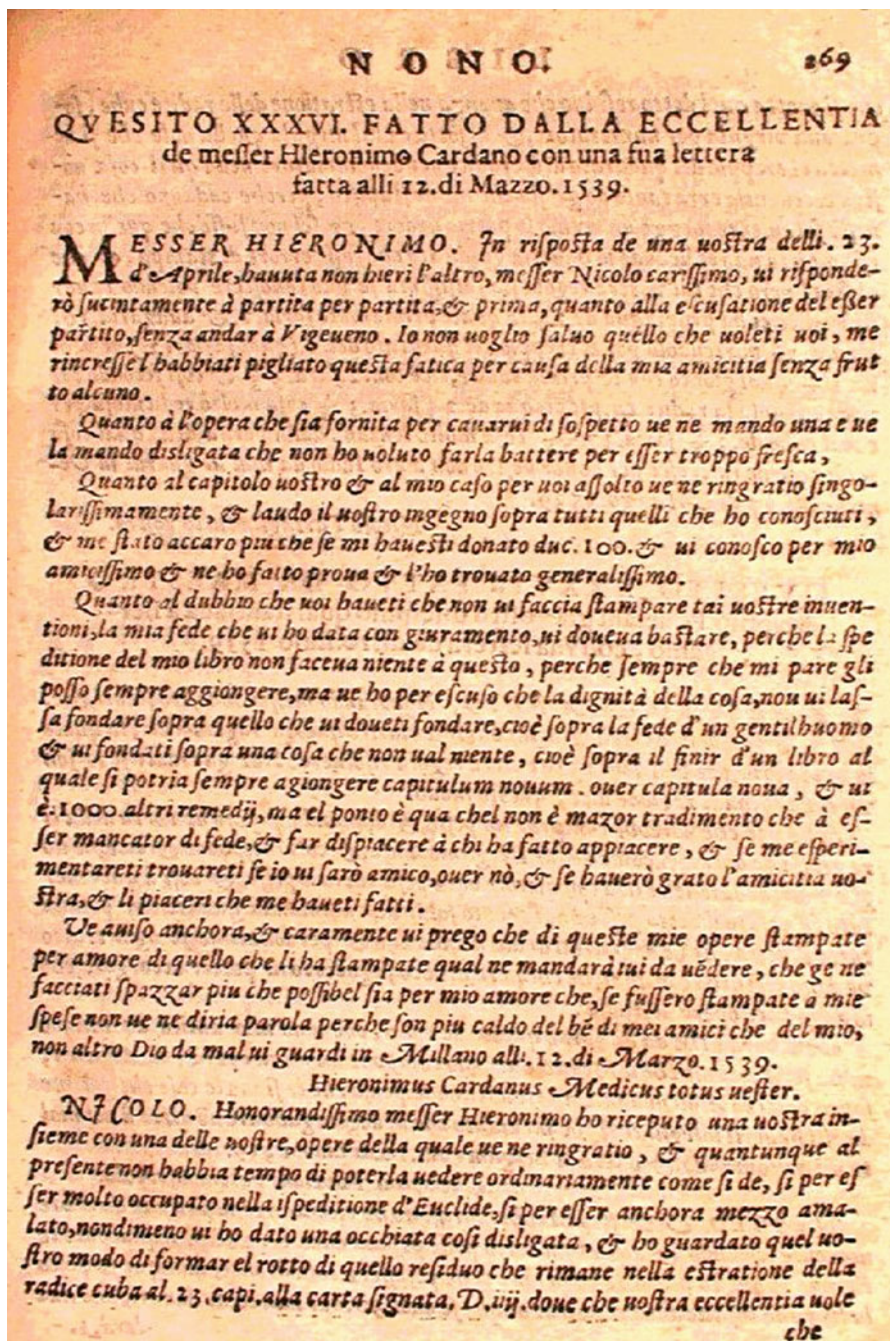 NONO. 269
QVESITO XXXVI. FATTO DALLA ECCELLENTIA
de messer Hieronimo Cardano con una sua lettera
fatta alli 12. di Mazzo. 1539.
MESSER HIERONIMO. In risposta de una uostra delli. 23.
d'Aprile, hauuta non hieri l'altro, messer Nicolo carissimo, ui risponde-
rò sucintamente à partita per partita, & prima, quanto alla escusatione del eßer
partito, senza andar à Vigeueno. Io non uoglio saluo quello che uoleti uoi, me
rincresse l'habbiati pigliato questa fatica per causa della mia amicitia senza frut
to alcuno.
Quanto à l'opera che sia fornita per cauarui di sospetto ue ne mando una e ue
la mando disligata che non ho uoluto farla battere per esser troppo fresca,
Quanto al capitolo uostro & al mio caso per uoi assolto ue ne ringratio singo-
larissimamente, & laudo il uostro ingegno sopra tutti quelli che ho conosciuti,
& me stato accaro piu che se mi hauesti donato duc. 100. & ui conosco per mio
amicissimo & ne ho fatto proua & l'ho trouato generalissimo.
Quanto al dubbio che uoi haueti che non ui faccia stampare tai uostre inuen-
tioni, la mia fede che ui ho data con giuramento, ui doueua bastare, perche la spe
ditione del mio libro non faceua niente à questo, perche sempre che mi pare gli
posso sempre aggiongere, ma ue ho per escuso che la dignità della cosa, nou ui las-
sa fondare sopra quello che ui doueti fondare, cioè sopra la fede d'un gentilhuomo
& ui fondati sopra una cosa che non ual niente, cioè sopra il finir d'un libro al
quale si potria sempre agiongere capitulum nouum. ouer capitula noua, & ui
è. 1000. altri remedij, ma el ponto è qua chel non è mazor tradimento che à es-
ser mancator di fede, & far dispiacere à chi ha fatto appiacere, & se me esperi-
mentareti trouareti se io ui sarò amico, ouer nò, & se hauerò grato l'amicitia uo-
stra, & li piaceri che me haueti fatti.
Ve auiso anchora, & caramente ui prego che di queste mie opere stampate
per amore di quello che li ha stampate qual ne mandarà tui da uedere, che ge ne
facciati spazzar piu che possibel sia per mio amore che, se fussero stampate à mie
spese non ue ne diria parola perche son piu caldo del bẽ di mei amici che del mio,
non altro Dio da mal ui guardi in Millano alli. 12. di Marzo. 1539.
Hieronimus Cardanus Medicus totus uester.
NICOLO. Honorandissimo messer Hieronimo ho riceputo una uostra in-
sieme con una delle uostre, opere della quale ue ne ringratio, & quantunque al
presente non habbia tempo di poterla uedere ordinariamente come si de, si per es
ser molto occupato nella ispeditione d'Euclide, si per esser anchora mezzo ama-
lato, nondimeno ui ho dato una occhiata cosi disligata, & ho guardato quel uo-
stro modo di formar el rotto di quello residuo che rimane nella estratione della
radice cuba al. 23. capi. alla carta signata. D. iiij. doue che uostra eccellentia uole
che